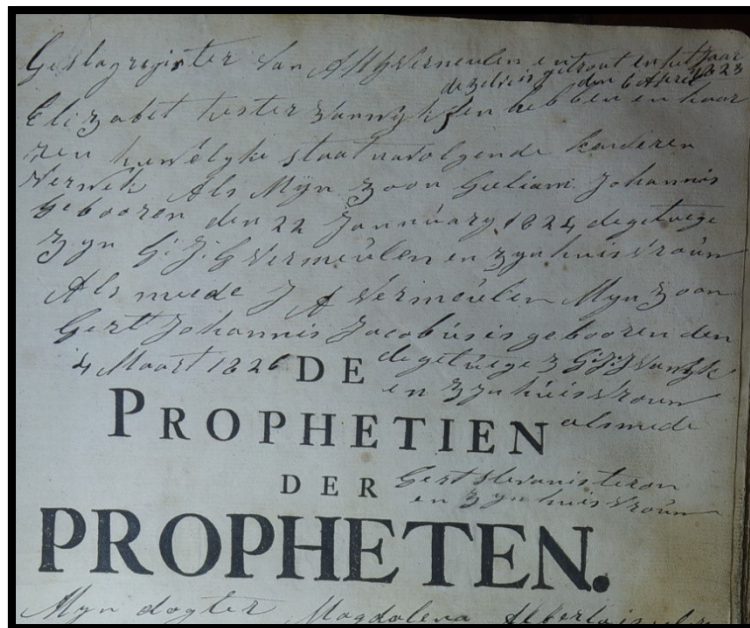 Geslagregister van A H G Vermeulen en getrout en het Jaar
dezelve is getrout den 6 April 1823
Elizabet hester Vanwyk en hebben en haar
zen huwelyke staat navolgende kenderen
Verwek Als Myn zoon Guliam Johannis
Gebooren den 22 Jannuary 1824 de getuege
zyn G. J. G Vermeulen en zyn huisvrouw
Als meede J A Vermeulen Myn zoon
Gert Johannis Jacobus is gebooren den
4 Maart 1826 de getuege z G. J. J Vanwyk
en zyn huisvrouw
DE
PROPHETIEN alsmede
DER Gert
en zyn huisvrouw
PROPHETEN.
Myn dogter Magdalena